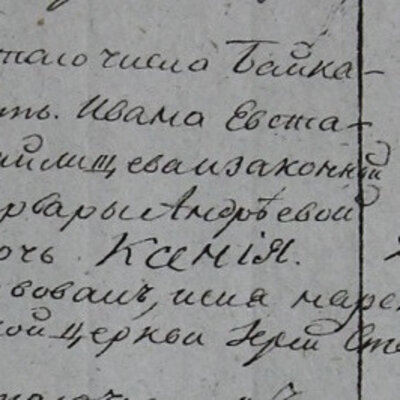 таго числа Байка-
ть. Ивана Евста-
йлищева и законной
рвары Андрѣевой
очь Ксенія.
вовалъ, имя наре
кой церкви Іерей Сте